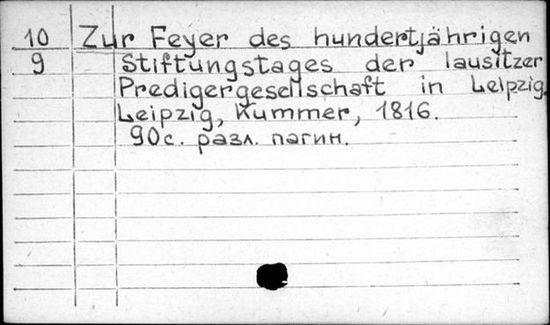 10 Zur Feyer des hundertjährigen
9 Stiftungstages der lausitzer
Predigergesellschaft in Leipzig.
Leipzig, Kummer, 1816.
90с. разл. пагин.